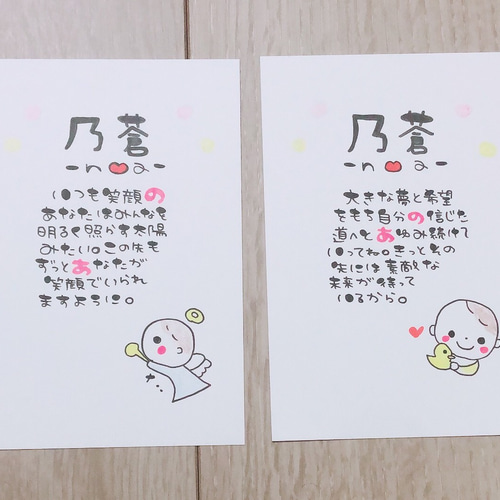 乃蒼
-noa-
いつも笑顔の
あなたはみんなを
明るく照らす太陽
みたい。この先も
ずっとあなたが
笑顔でいられ
ますように。
乃蒼
-noa-
大きな夢と希望
をもち自分の信じた
道へとあゆみ続けて
いってね。きっとその
先には素敵な
未来が待って
いるから。